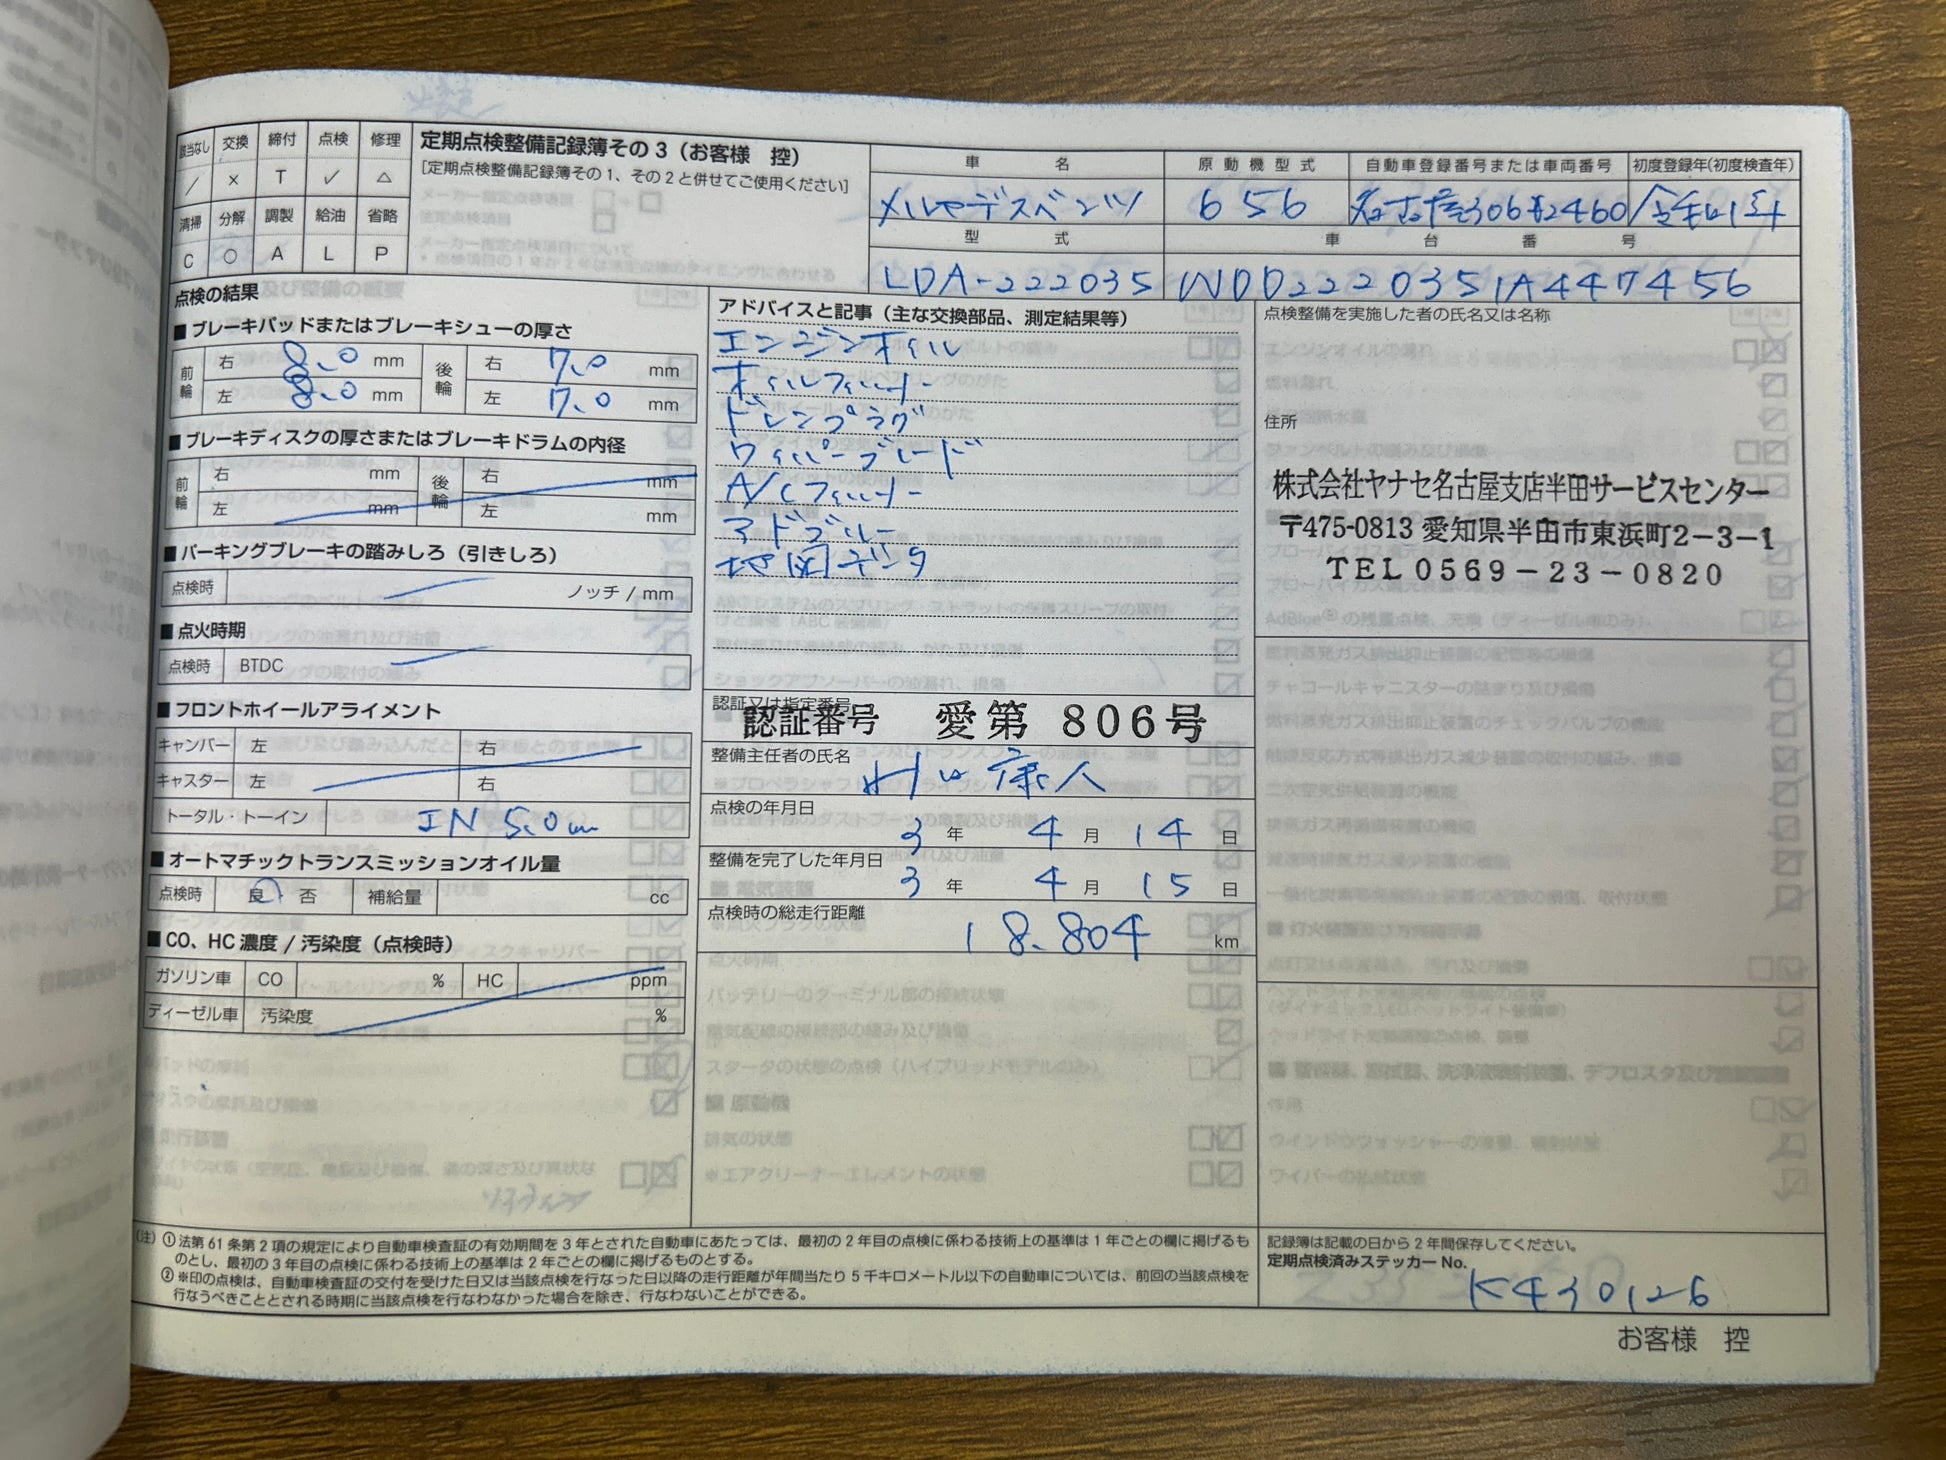 該当なし 交換 締付 点検 修理
／ × T ✓ △
清掃 分解 調製 給油 省略
C ○ A L P
定期点検整備記録簿その3（お客様　控）
[定期点検整備記録簿その1、その2と併せてご使用ください]
車名 原動機型式 自動車登録番号または車両番号 初度登録年(初度検査年)
メルセデスベンツ 656 名古屋306 2460
型式 車台番号
LDA-222035 WDD2220351A447456
点検の結果
■ブレーキパッドまたはブレーキシューの厚さ
前輪 右 8.0 mm 後輪 右 7.0 mm
左 8.0 mm 左 7.0 mm
■ブレーキディスクの厚さまたはブレーキドラムの内径
前輪 右 mm 後輪 右 mm
左 mm 左 mm
■パーキングブレーキの踏みしろ（引きしろ）
点検時 ノッチ / mm
■点火時期
点検時 BTDC
■フロントホイールアライメント
キャンバー 左 右
キャスター 左 右
トータル・トーイン IN 5.0
■オートマチックトランスミッションオイル量
点検時 良 否 補給量 cc
■CO、HC濃度 / 汚染度（点検時）
ガソリン車 CO % HC ppm
ディーゼル車 汚染度 %
アドバイスと記事（主な交換部品、測定結果等）
エンジンオイル
オイルフィルター
ドレンプラグ
ワイパーブレード
A/Cフィルター
アドブルー
地図データ
認証又は指定番号
認証番号　愛第 806号
整備主任者の氏名
点検の年月日
3 年 4 月 14 日
整備を完了した年月日
3 年 4 月 15 日
点検時の総走行距離
18.804 km
点検整備を実施した者の氏名又は名称
住所
株式会社ヤナセ名古屋支店半田サービスセンター
〒475-0813 愛知県半田市東浜町2-3-1
TEL 0569-23-0820
(注) ①法第61条第2項の規定により自動車検査証の有効期間を3年とされた自動車にあたっては、最初の2年目の点検に係わる技術上の基準は1年ごとの欄に掲げるも
のとし、最初の3年目の点検に係わる技術上の基準は2年ごとの欄に掲げるものとする。
②※印の点検は、自動車検査証の交付を受けた日又は当該点検を行なった日以降の走行距離が年間当たり5千キロメートル以下の自動車については、前回の当該点検を
行なうべきこととされる時期に当該点検を行なわなかった場合を除き、行なわないことができる。
記録簿は記載の日から2年間保存してください。
定期点検済みステッカーNo.
K430126
お客様　控